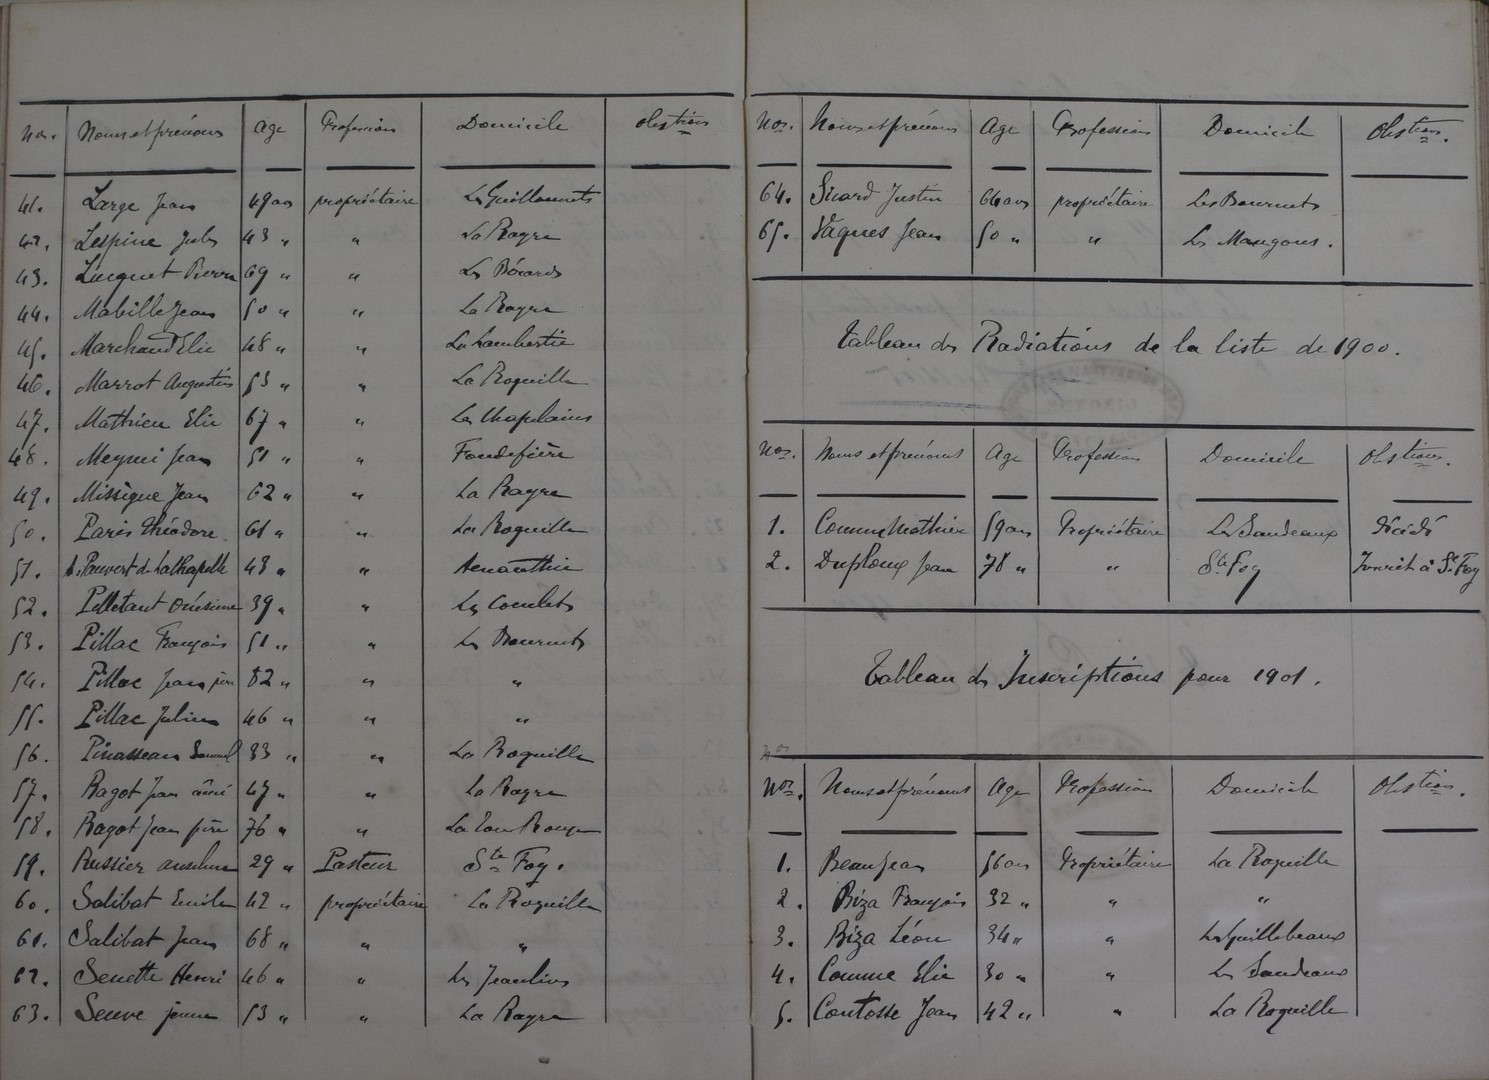 Nos. Noms et prénoms Age Profession Domicile Obstions
41. Large Jean 49 ans propriétaire Les Guillaumets
42. Lespine Jules 43 " " La Rayre
43. Lucquet Pierre 69 " " Les Bérards
44. Mabille Jean 50 " " La Rayre
45. Marchand Elie 48 " " La Lambertie
46. Marrot Augustin 53 " " La Roquille
47. Mathieu Elie 67 " " Les Chapelains
48. Meynui Jean 51 " " Fondefière
49. Missègue Jean 62 " " La Rayre
50. Paris Théodore 61 " " La Roquille
51. de Pauvert de Lachapelle 43 " "
52. Pelletant Onésime 39 " " Les Coculets
53. Pillac François 51 " " Les Bournets
54. Pillac Jean père 82 " " "
55. Pillac Julien 46 " " "
56. Pinasseau Samuel 33 " " La Roquille
57. Ragot Jean aîné 47 " " La Rayre
58. Ragot Jean père 76 " " La Tour Rouge
59. Russier Anselme 29 " Pasteur Ste Foy.
60. Salibat Emile 42 " propriétaire La Roquille
61. Salibat Jean 68 " " "
62. Senette Henri 46 " " Les Jeanlins
63. Seuve jeune 53 " " La Rayre
Nos. Noms et prénoms Age Profession Domicile Obstions.
64. Sicard Justin 64 ans propriétaire Les Bournets
65. Vâques Jean 50 " " Les Maugons.
Tableau des Radiations de la liste de 1900.
Nos. Noms et prénoms Age Profession Domicile Obstions.
1. Comme Mathieu 59 ans Propriétaire Les Sandeaux décédé
2. Duploux Jean 78 " " Ste Foy Inscrit à Ste Foy
Tableau des Inscriptions pour 1901.
Nos
Nos. Noms et prénoms Age Profession Domicile Obstions.
1. Beau Jean 56 ans Propriétaire La Roquille
2. Biza François 32 " " "
3. Biza Léon 34 " " Les Guillebeaux
4. Comme Elie 30 " " Les Sandeaux
5. Contosse Jean 42 " " La Roquille